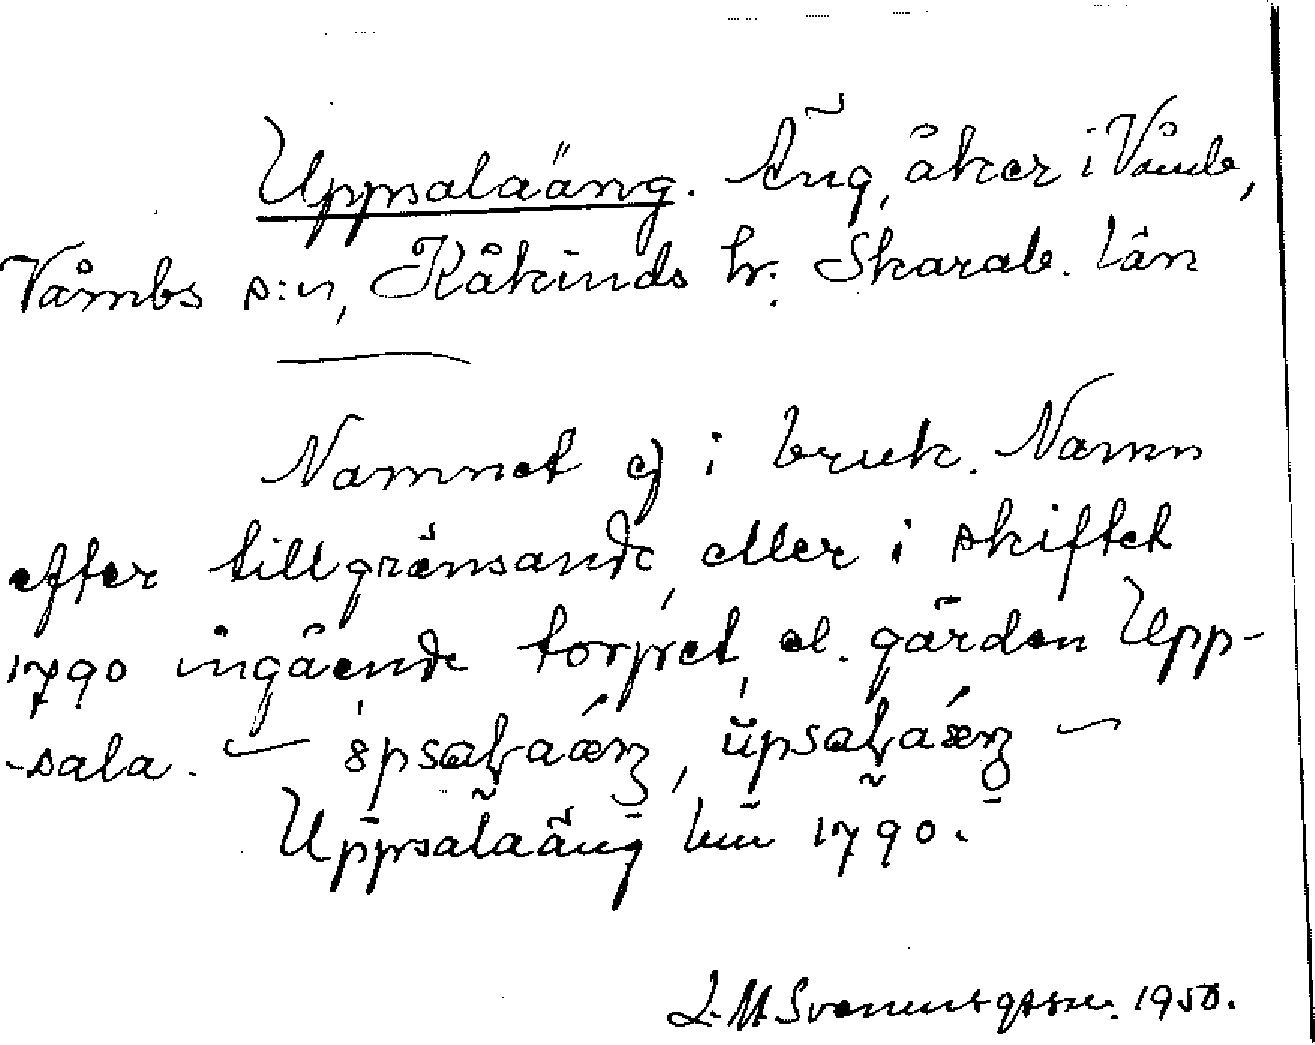 Uppsalaäng. Äng, åker i Våmb,
Våmbs s:n, Kåkinds hr. Skarab. län
Namnet ej i bruk. Namn
efter tillgränsande, eller i skiftet
1790 ingående torpet, el. gården Upp-
-sala.
Uppsalaäng 1790.
1950.